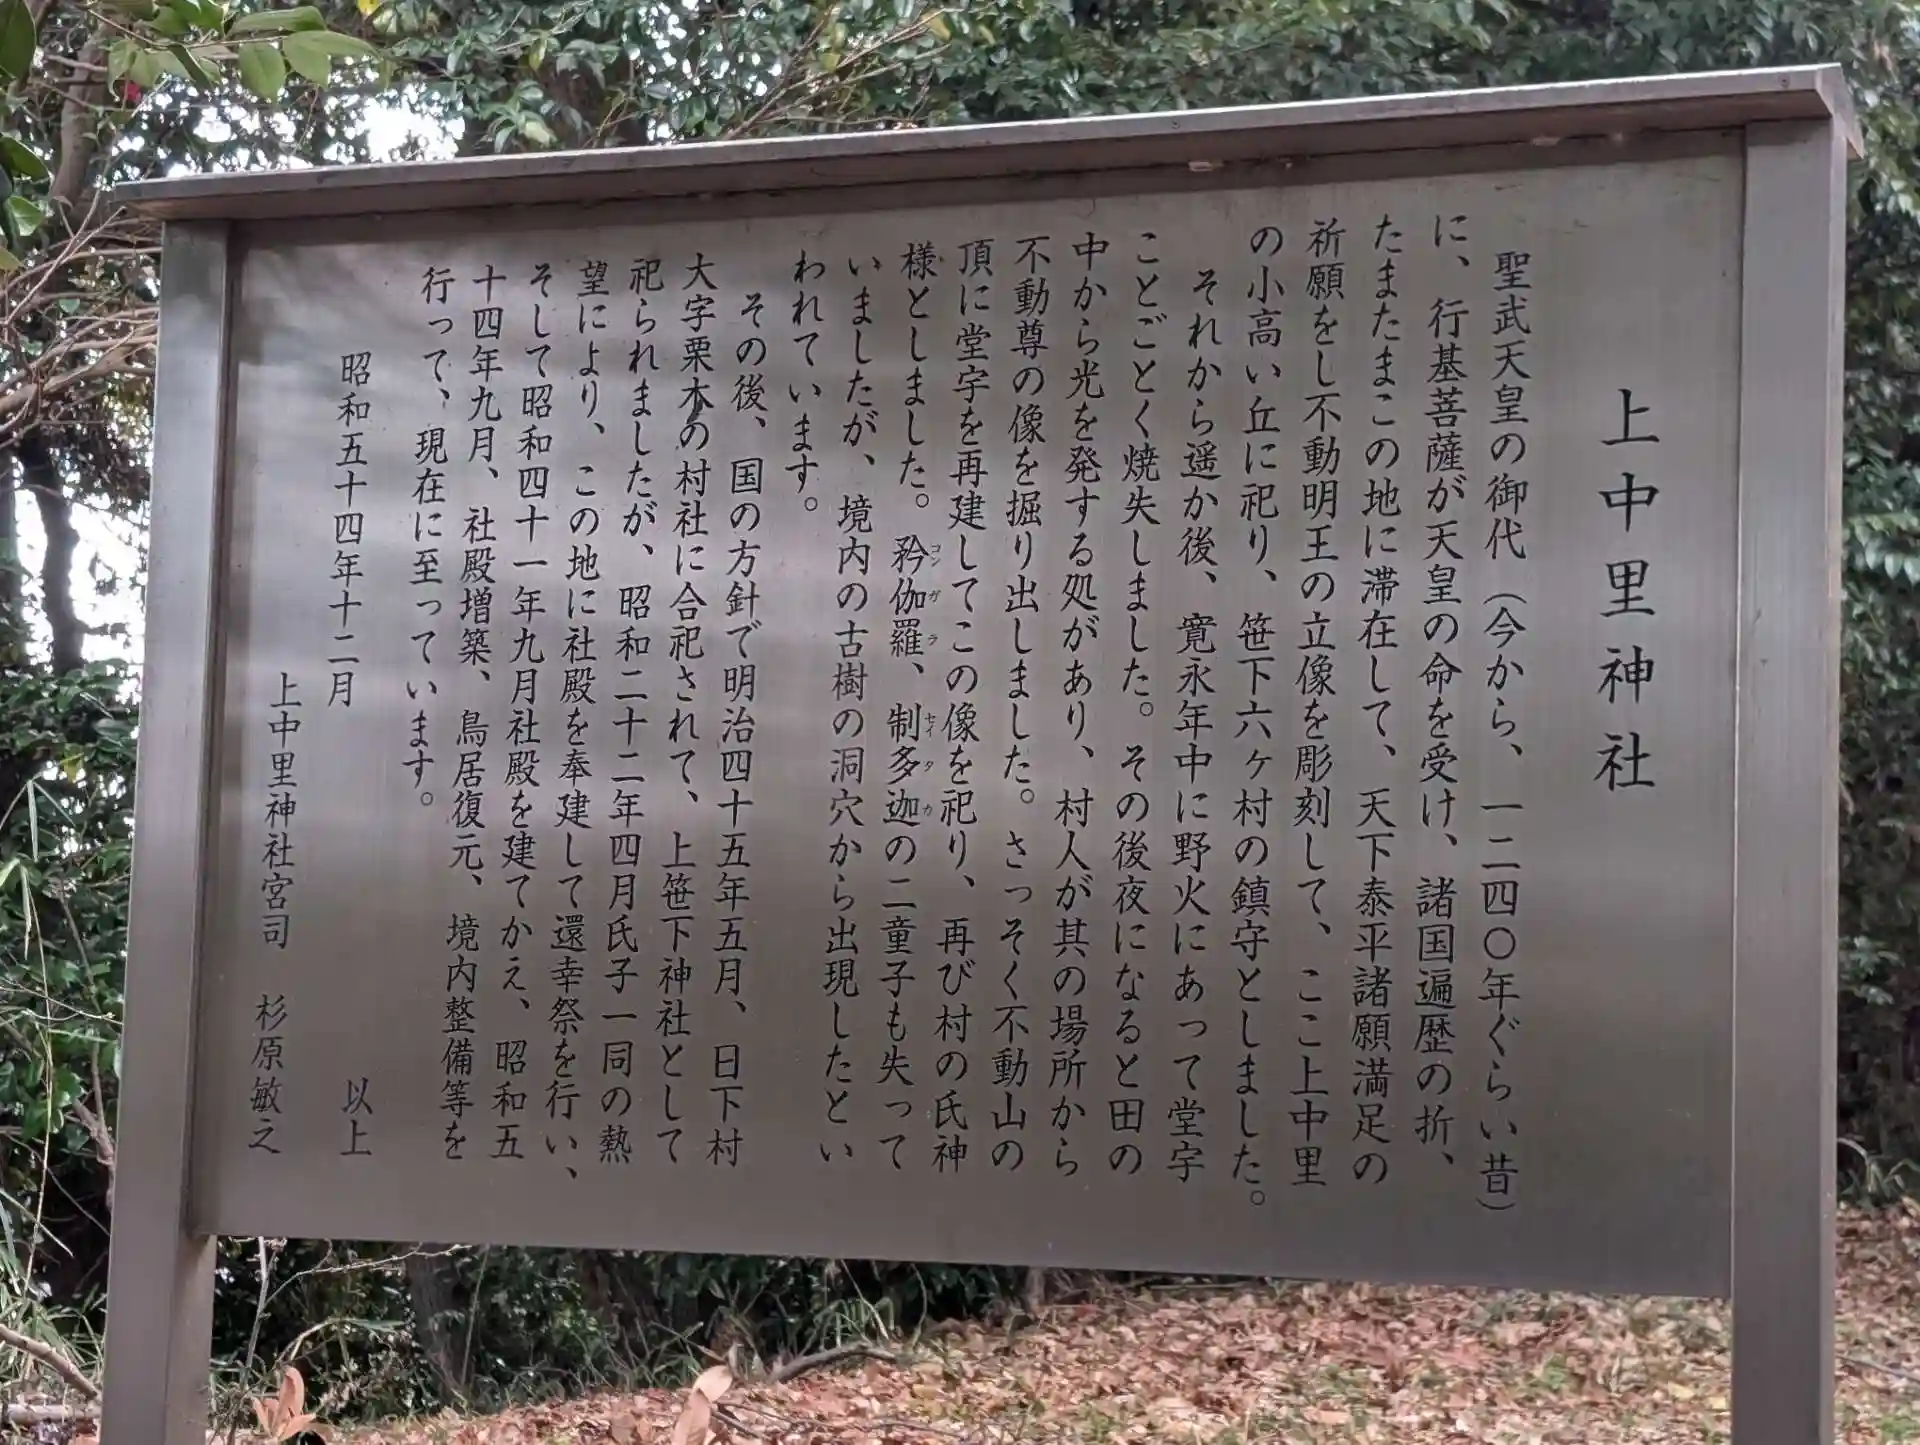 上中里神社
聖武天皇の御代（今から、一二四〇年ぐらい昔）
に、行基菩薩が天皇の命を受け、諸国遍歴の折、
たまたまこの地に滞在して、天下泰平諸願満足の
祈願をし不動明王の立像を彫刻して、ここ上中里
の小高い丘に祀り、笹下六ヶ村の鎮守としました。
それから遥か後、寛永年中に野火にあって堂宇
ことごとく焼失しました。その後夜になると田の
中から光を発する処があり、村人が其の場所から
不動尊の像を掘り出しました。さっそく不動山の
頂に堂宇を再建してこの像を祀り、再び村の氏神
様としました。矜伽羅、制多迦の二童子も失って
コンガラ セイタカ
いましたが、境内の古樹の洞穴から出現したとい
われています。
その後、国の方針で明治四十五年五月、日下村
大字栗木の村社に合祀されて、上笹下神社として
祀られましたが、昭和二十二年四月氏子一同の熱
望により、この地に社殿を奉建して還幸祭を行い、
そして昭和四十一年九月社殿を建てかえ、昭和五
十四年九月、社殿増築、鳥居復元、境内整備等を
行って、現在に至っています。
以上
昭和五十四年十二月
上中里神社宮司 杉原敏之